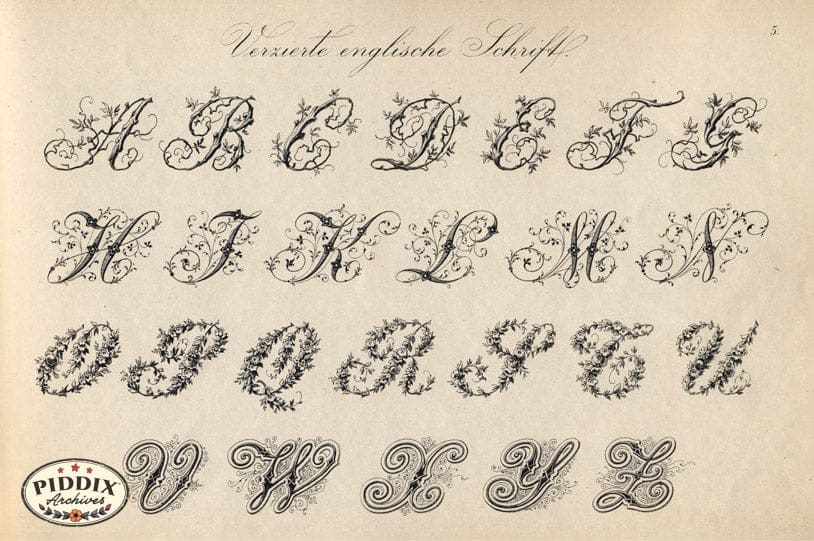 Verzierte englische Schrift.
5.
A B C D E F G
H I K L M N
O P Q R S T U
V W X Y Z
PIDDIX
Archives